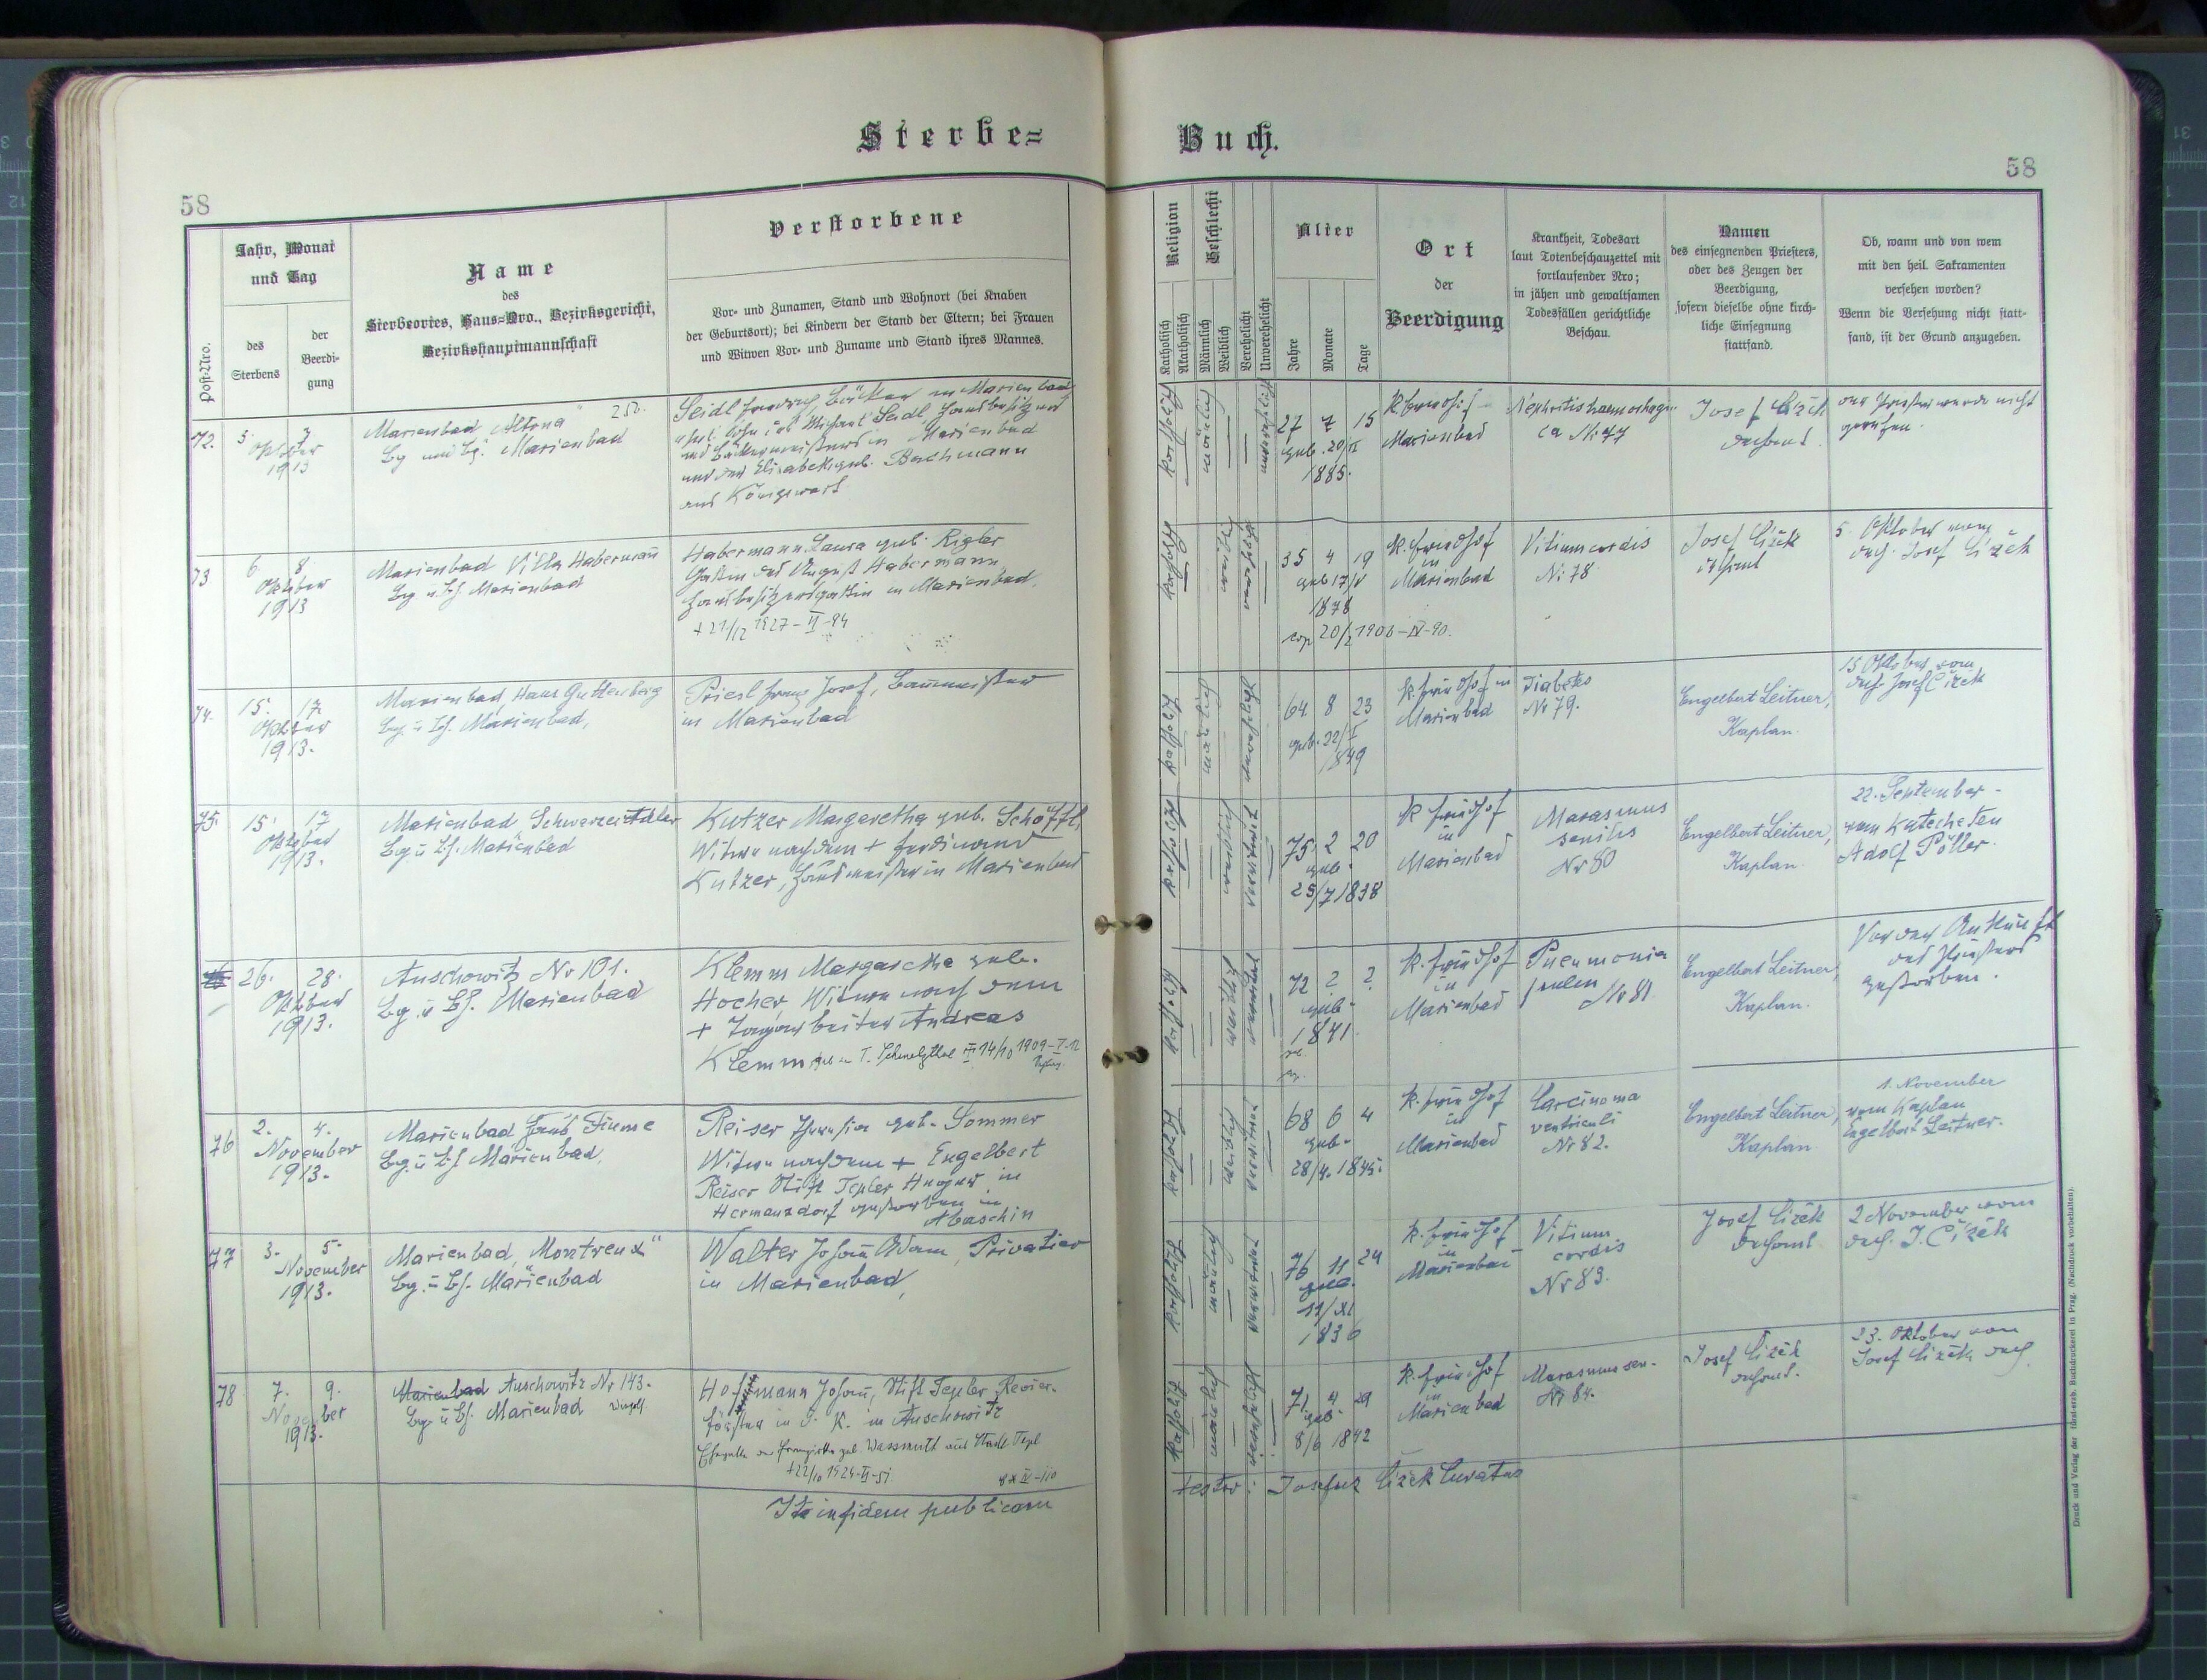 Sterbe=
Buch.
58
58
Post-Nro.
Jahr, Monat
und Tag
des
Sterbens
der
Beerdi-
gung
Name
des
Sterbeortes, Haus-Nro., Bezirksgericht,
Bezirkshauptmannschaft
Verstorbene
Vor- und Zunamen, Stand und Wohnort (bei Knaben
der Geburtsort); bei Kindern der Stand der Eltern; bei Frauen
und Witwen Vor- und Zuname und Stand ihres Mannes.
Religion
Katholisch
Akatholisch
Geschlecht
Männlich
Weiblich
Verehelicht
Unverehelicht
Alter
Jahre
Monate
Tage
Ort
der
Beerdigung
Krankheit, Todesart
laut Totenbeschauzettel mit
fortlaufender Nro;
in jähen und gewaltsamen
Todesfällen gerichtliche
Beschau.
Namen
des einsegnenden Priesters,
oder des Zeugen der
Beerdigung,
sofern dieselbe ohne kirch-
liche Einsegnung
stattfand.
Ob, wann und von wem
mit den heil. Sakramenten
versehen worden?
Wenn die Versehung nicht statt-
fand, ist der Grund anzugeben.
72.
5. 7
Oktober
1913
Marienbad "Altona"
Bg und Bz. Marienbad
Seidl Friedrich, Bäcker in Marienbad
ehel. Sohn des Michael Seidl, Hausbesitzers
und Bäckermeisters in Marienbad
und der Elisabeth geb. Bachmann
aus Königswart
katholisch
männlich
unverehelicht
27 7 15
geb. 20/II
1885.
K. Friedhof
Marienbad
Nephritis haemorhagi-
ca Nr 77
Josef Cizek
Dechant.
der Priester wurde nicht
gerufen.
73
6. 8.
Oktober
1913
Marienbad Villa Habermann
Bg. u. Bh. Marienbad
Habermann Laura geb. Rigler
Gattin des August Habermann
Hausbesitzersgattin in Marienbad.
+ 21/12 1927-VI-94
katholisch
weiblich
verehelicht
35 4 19
geb 17/V
1878
cop 20/2 1906-IV-90.
K. Friedhof
in
Marienbad
Vitium cordis
Nr 78
Josef Cizek
Dechant
5. Oktober vom
Dech. Josef Cizek
74.
15. 17.
Oktober
1913.
Marienbad, Haus Guttenberg
Bg. u. Bh. Marienbad,
Priesl Franz Josef, Baumeister
in Marienbad
katholisch
männlich
verehelicht
64 8 23
geb. 22/I
1849
K. Friedhof in
Marienbad
Diabetes
Nr 79.
Engelbert Leitner,
Kaplan.
15 Oktober vom
Dech. Josef Cizek
75.
15. 17
Oktober
1913.
Marienbad "Schwarzer Adler"
Bg. u. Bh. Marienbad
Kutzer Margaretha geb. Schöfftl,
Witwe nach dem + Ferdinand
Kutzer, Hausmeister in Marienbad
katholisch
weiblich
verwitwet
75 2 20
geb.
25/7 1838
K. Friedhof
in
Marienbad
Marasmus
senilis
Nr 80
Engelbert Leitner,
Kaplan.
22. September -
vom Katecheten
Adolf Pöller.
26. 28.
Oktober
1913.
Auschowitz Nr 101.
Bg. u. Bh. Marienbad
Klemm Margarethe geb.
Hocher, Witwe nach dem
+ Tagarbeiter Andreas
Klemm 14/10 1909-V-12
katholisch
weiblich
verwitwet
72 ? ?
geb.
1841.
K. Friedhof
in
Marienbad
Pneumonia
senilen
Nr 81.
Engelbert Leitner,
Kaplan.
Vor der Ankunft
des Priesters
gestorben.
76
2. 4.
November
1913.
Marienbad, Haus Fiume
Bg. u. Bh. Marienbad,
Reiser Theresia geb. Sommer
Witwe nach dem + Engelbert
Reiser Stift Tepler Heger in
Hermannsdorf gestorben in
Abaschin
katholisch
weiblich
verwitwet
68 6 4
geb.
28/4. 1845.
K. Friedhof
in
Marienbad
Carcinoma
ventriculi
Nr 82.
Engelbert Leitner,
Kaplan.
1. November
vom Kaplan
Engelbert Leitner.
77
3. 5.
November
1913.
Marienbad "Montreux"
Bg. u. Bh. Marienbad
Walter Johann Adam, Privatier
in Marienbad,
katholisch
männlich
verwitwet
76 11 24
geb.
11/XI
1836
K. Friedhof
in
Marienbad
Vitium
cordis
Nr 83.
Josef Cizek
Dechant
2 November vom
Dech. J. Cizek
78
7. 9.
November
1913.
Marienbad Auschowitz Nr 143.
Bg. u. Bh. Marienbad
Hofmann Johann, Stift Tepler Revier-
förster in P. K. in Auschowitz
Ehegatte der Franziska geb. Wassmuth aus Stadt Tepl
+22/10 1924-VI-51.
katholisch
männlich
verehelicht
71. 4. 29
geb.
8/6 1842
K. Friedhof
in
Marienbad
Marasmus sen-
Nr 84.
Josef Cizek
Dechant.
23. Oktober von
Josef Cizek Dech
Ita in fidem publicam
testor: Josefus Cizek Curatus
Druck und Verlag der fürst-erzb. Buchdruckerei in Prag. (Nachdruck vorbehalten).